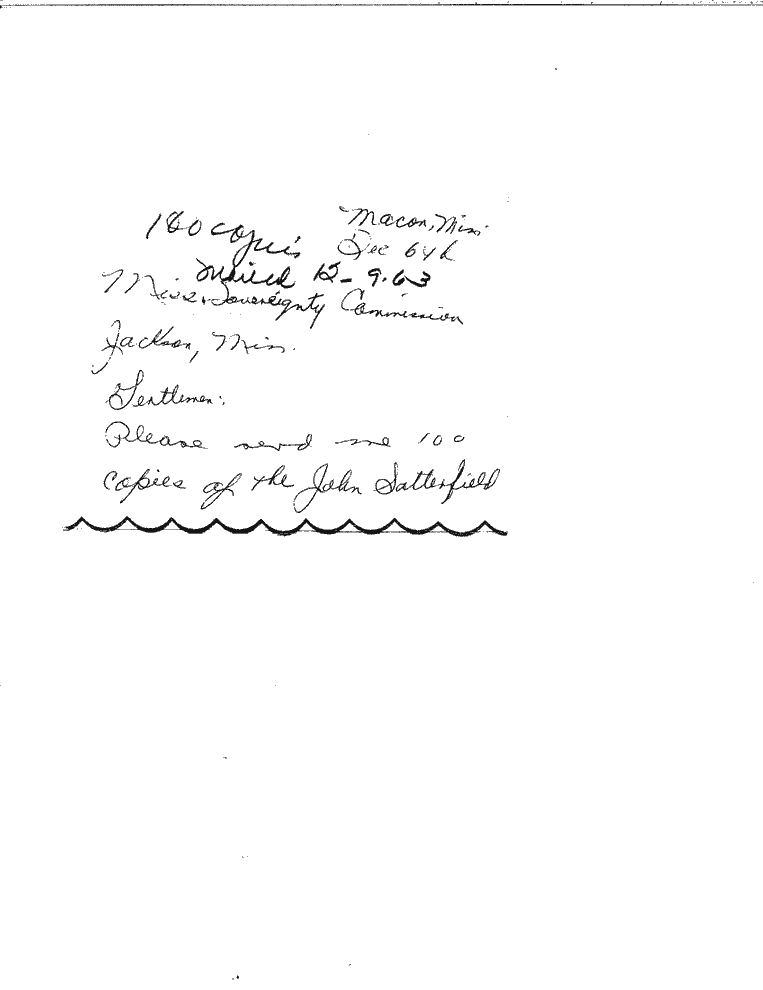 Macon, Miss.
100 copies
Dec 6th
mailed 12-9-63
Miss. Sovereignty Commission
Jackson, Miss.
Gentlemen:
Please send me 100
copies of the John Satterfield